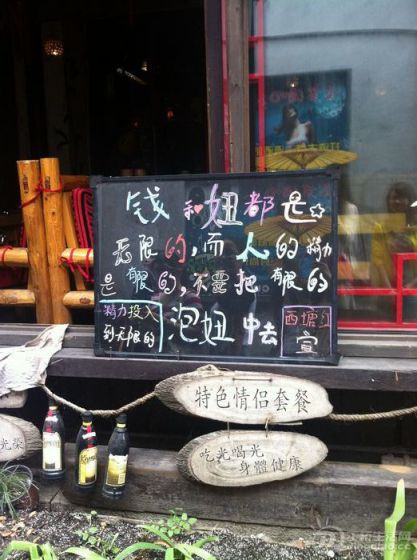 钱和妞都是
无限的，而人的精力
是有限的，不要把有限的
精力投入
到无限的
泡妞中去
西塘红
宣
特色情侣套餐
吃光喝光
身體健康
光荣